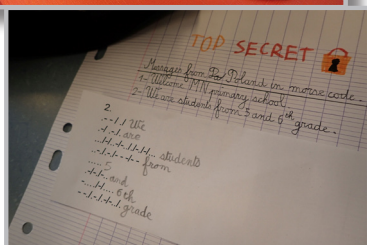 TOP SECRET
Messages from Poland in morse code.
1- Welcome MN primary school
2- We are students from 5 and 6th grade.
2.
.--/./ We
.-/.-./. are
students
from
..... 5
and
6th
grade